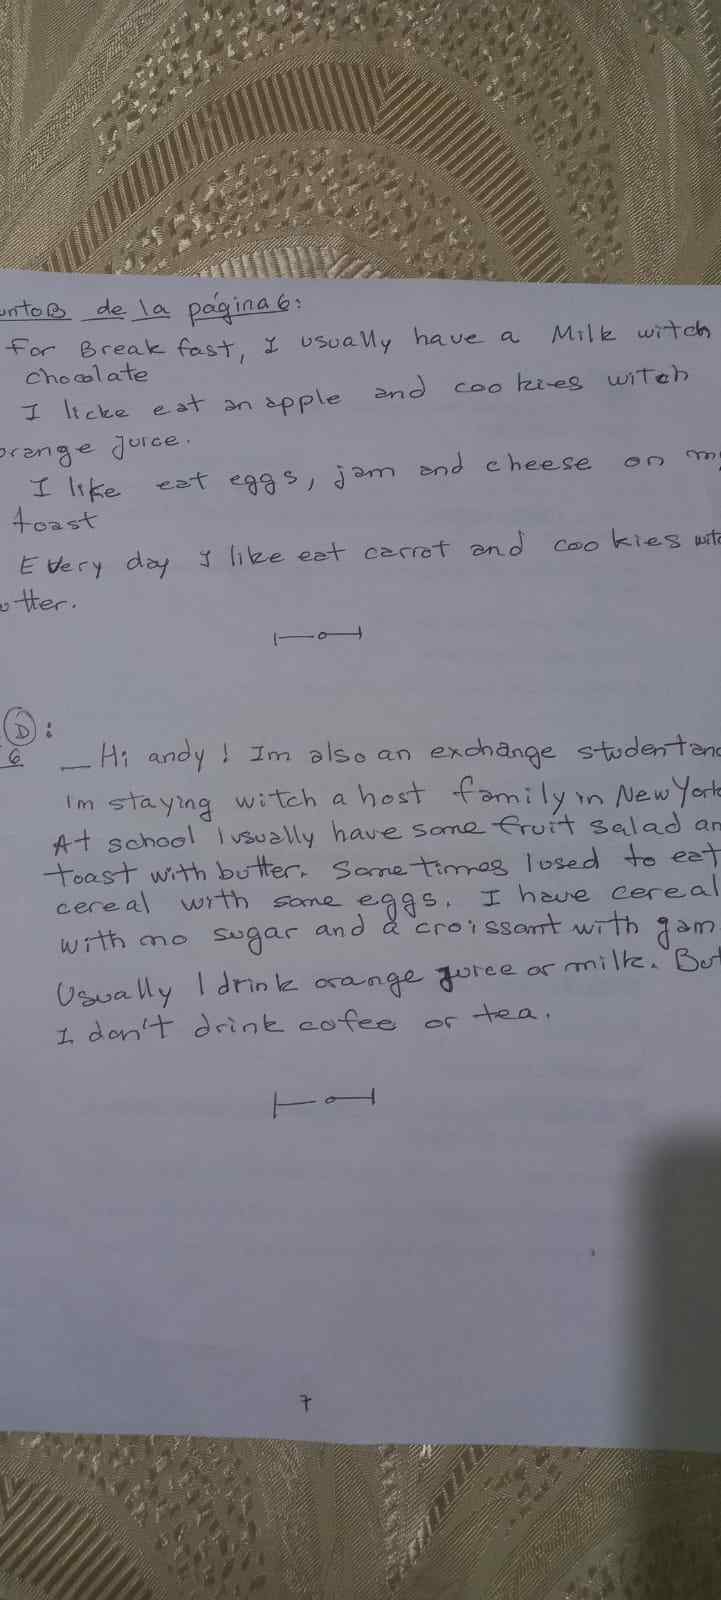 untoB de la página 6:
For Break fast, I usually have a Milk witch
chocolate
I licke eat an apple and cookies witch
orange juice.
I like eat eggs, jam and cheese on my
toast
Every day I like eat carrot and cookies witc
utter.
D:
6
_ Hi andy! Im also an exchange student and
I'm staying witch a host family in New York
At school I usually have some fruit salad an
toast with butter. Sometimes I used to eat
cereal with some eggs. I have cereal
with no sugar and a croissant with gam.
Usually I drink orange juice or milk. But
I don't drink cofee or tea.
7